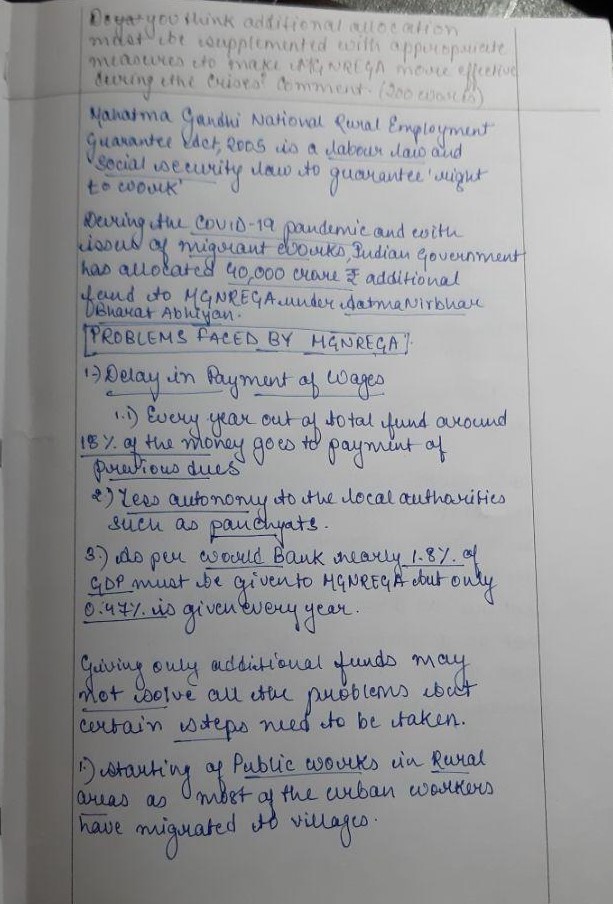 Do you think additional allocation
must be supplemented with appropriate
measures to make MGNREGA more effective
during the crises? Comment. (200 words)
Mahatma Gandhi National Rural Employment
Guarantee Act, 2005 is a labour law and
social security law to guarantee 'right
to work'
During the COVID-19 pandemic and with
issue of migrant works, Indian Government
has allocated 40,000 crore ₹ additional
fund to MGNREGA under Aatma Nirbhar
Bharat Abhiyan.
[PROBLEMS FACED BY MGNREGA]:
1.) Delay in Payment of Wages
1.1) Every year out of total fund around
18% of the money goes to payment of
previous dues
2.) Less autonomy to the local authorities
such as panchyats.
3.) As per World Bank nearly 1.8% of
GDP must be given to MGNREGA but only
0.47% is given every year.
Giving only additional funds may
not solve all the problems but
certain steps need to be taken.
1.) starting of Public works in Rural
areas as most of the urban workers
have migrated to villages.